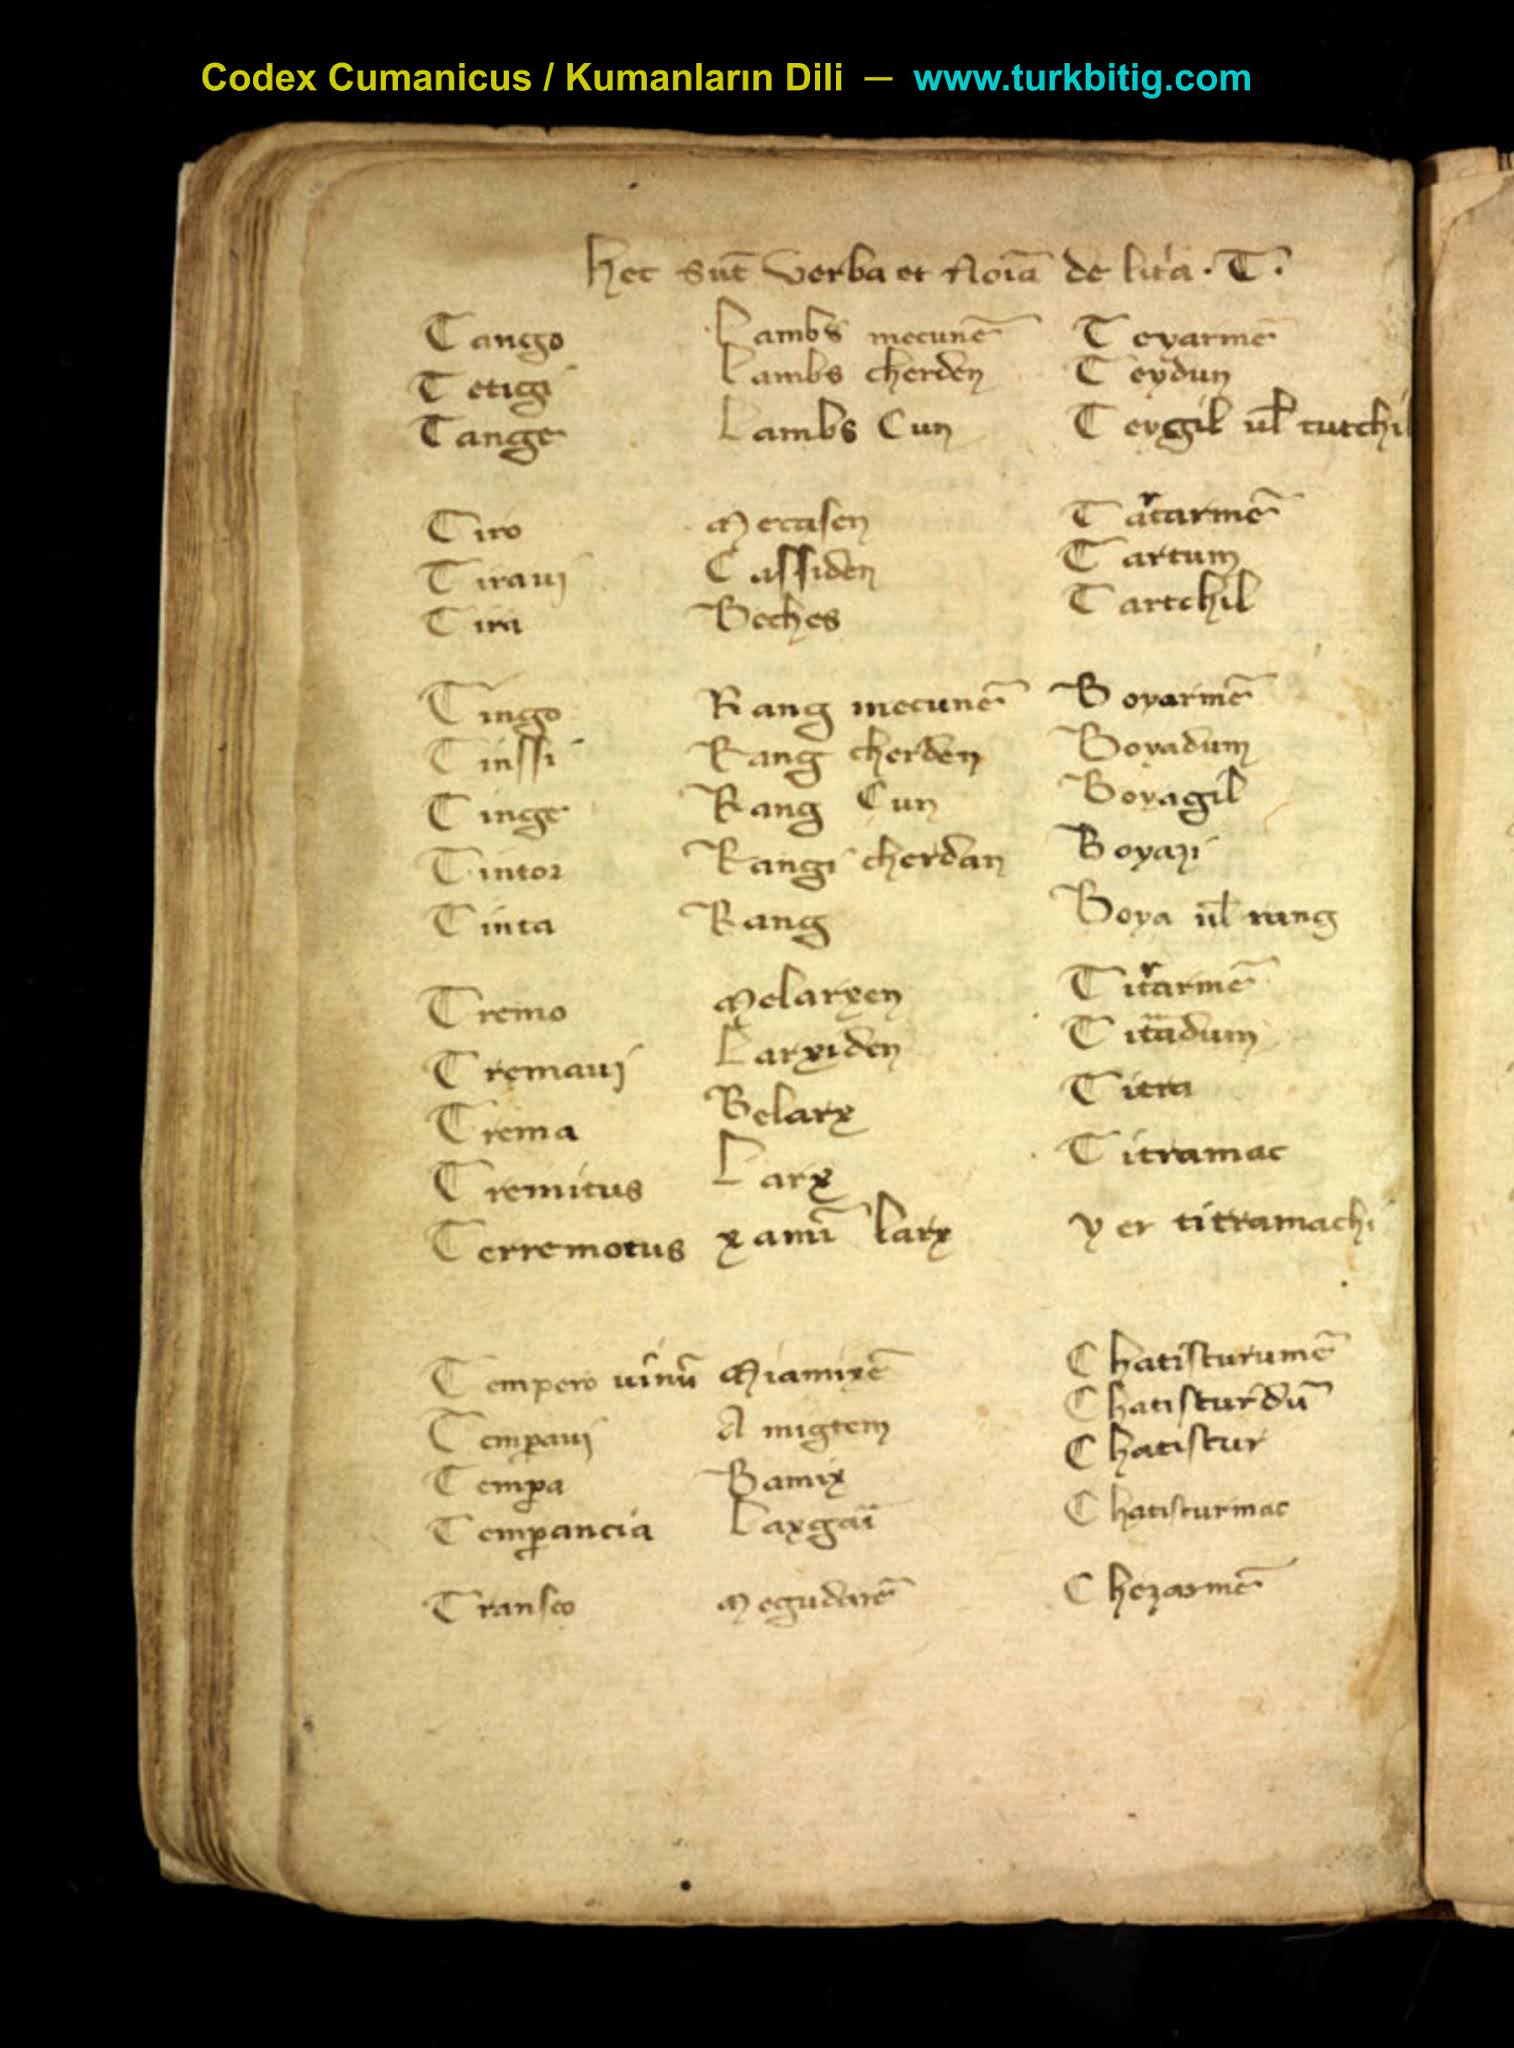 Codex Cumanicus / Kumanların Dili — www.turkbitig.com
hec sūt verba et noīa de lit'a · T ·
Tango Lambs mecunē Teyarmē
Tetigi Lambs cherden Teydun
Tange Lambs Cun Teygil ul tutchil
Tiro Mecasen Tartarmē
Tiraui Cassiden Tartum
Tira Beches Tartchil
Tingo Rang mecunē Boyarmē
Tinssi Rang cherden Boyadum
Tinge Rang Cun Boyagil
Tintor Rangi cherdan Boyazi
Tinta Rang Boya ul rang
Tremo Melarxen Titrarmē
Tremaui Larxiden Titradum
Trema Belarx Titra
Tremitus Larx Titramac
Terremotus xamī larx yer titramachi
Tempero uinū Miamixē Chatisturumē
Temꝑaui Amigtem Chatisturdū
Temꝑa Bamix Chatistur
Temꝑancia Laxgaī Chatisturmac
Transeo Megudarē Chezarmē